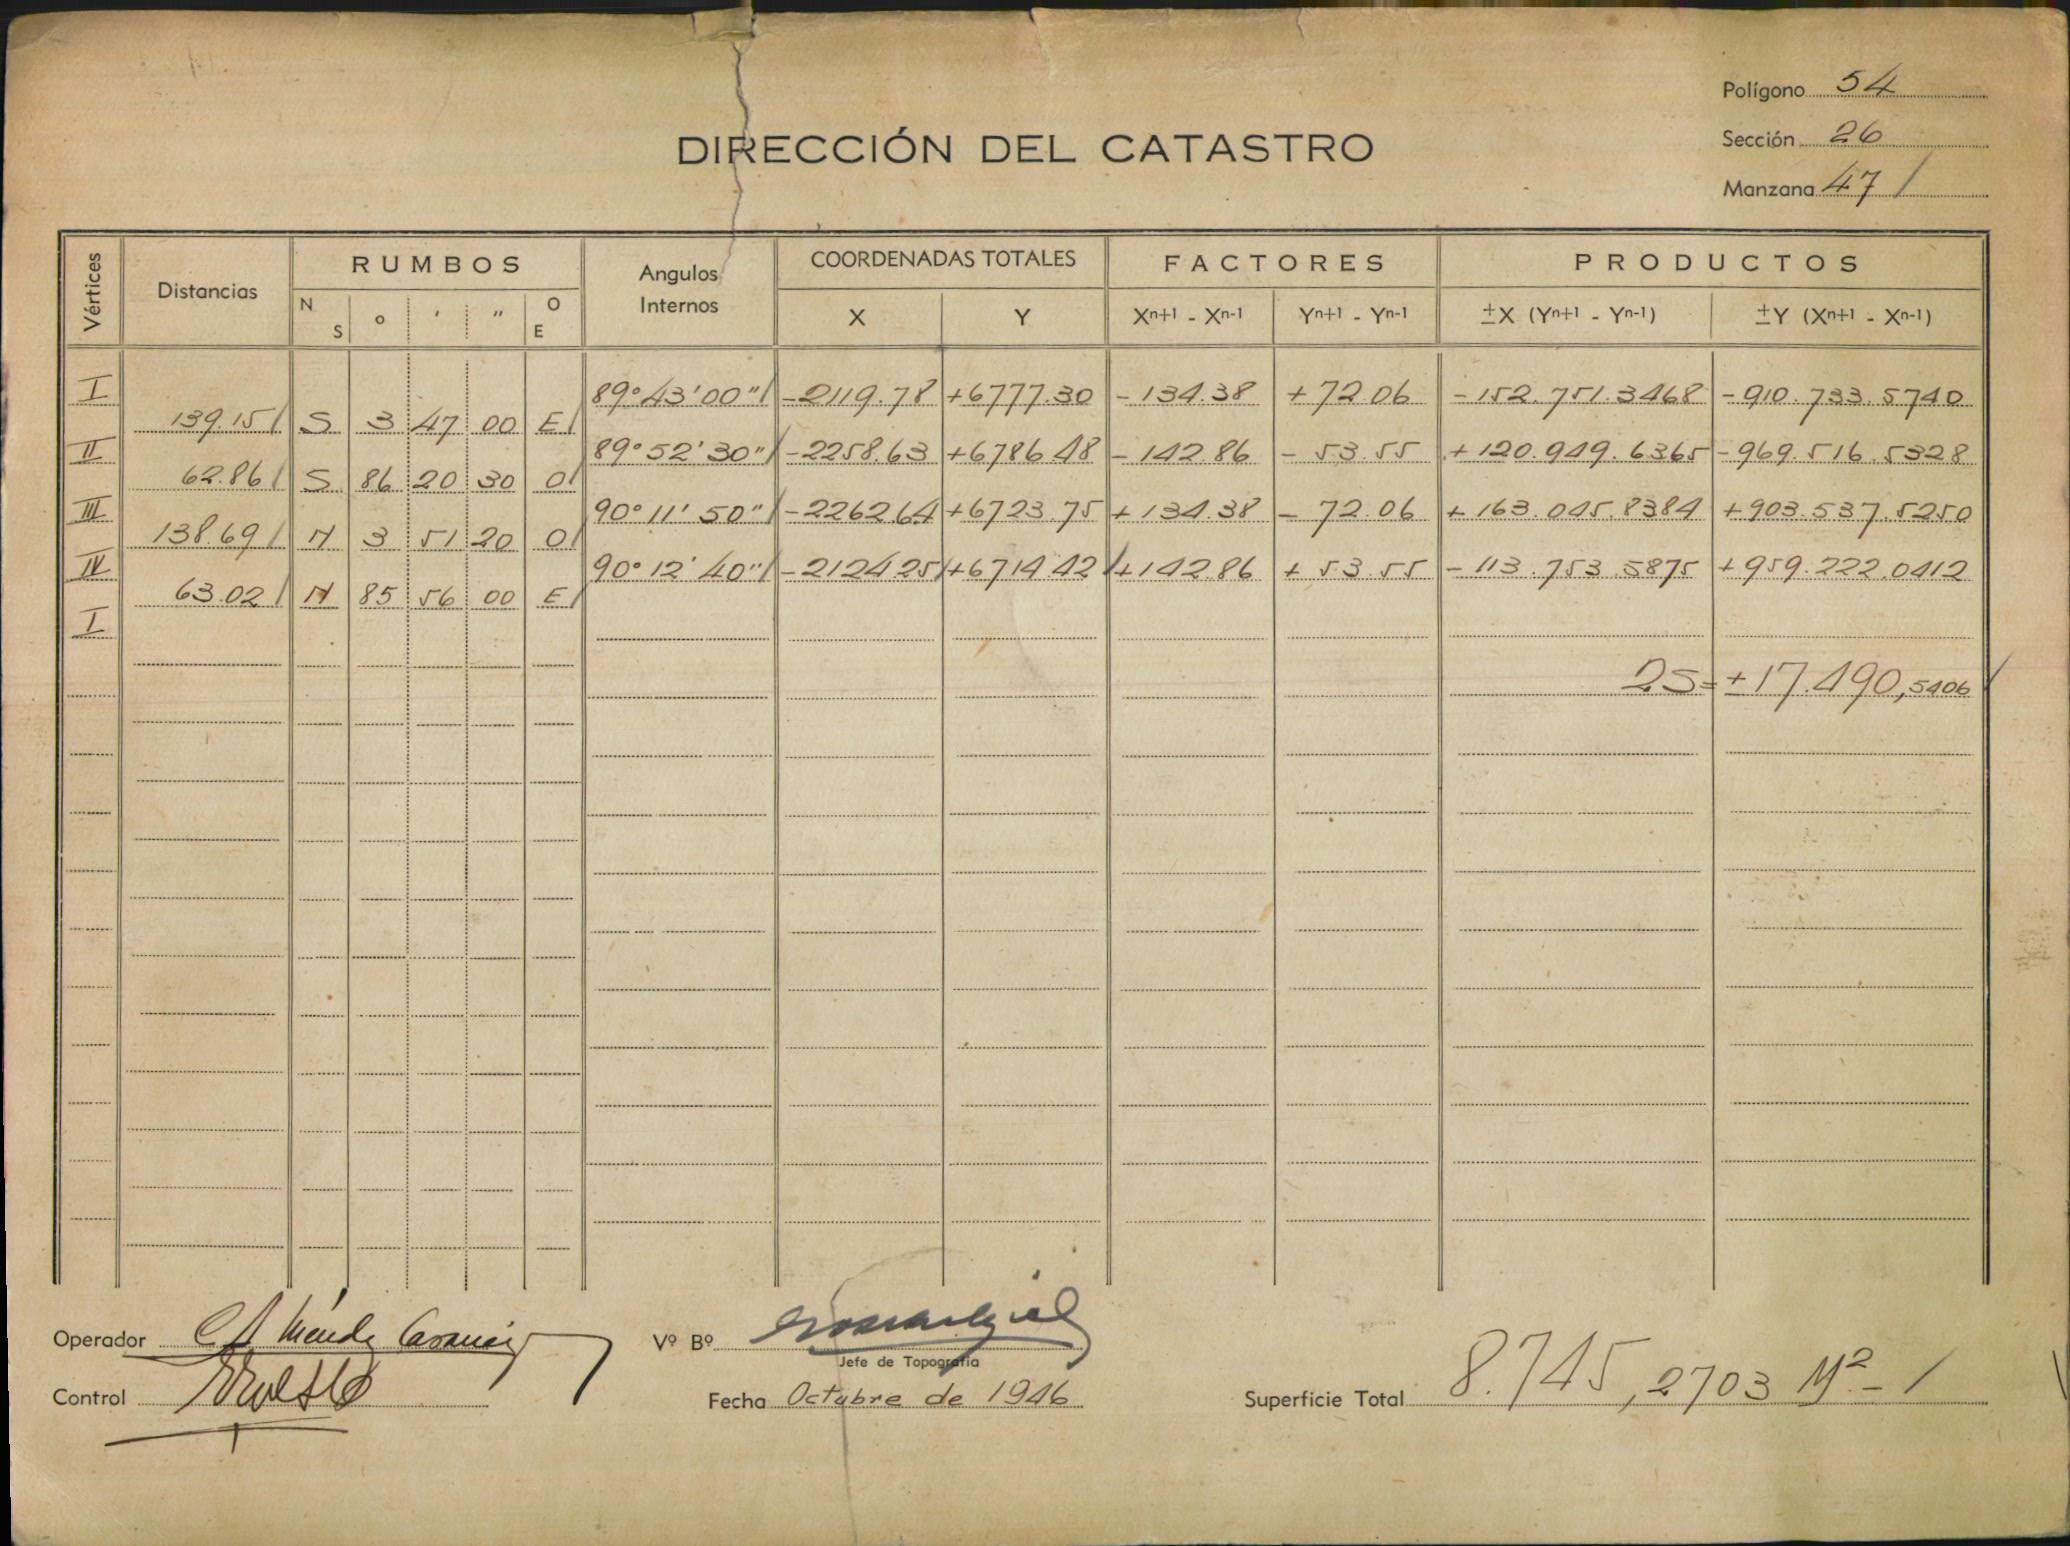 Polígono 54
DIRECCIÓN DEL CATASTRO
Sección 26
Manzana 47 /
Vértices Distancias RUMBOS Angulos Internos COORDENADAS TOTALES FACTORES PRODUCTOS
N S o ' " O E X Y Xⁿ⁺¹ - Xⁿ⁻¹ Yⁿ⁺¹ - Yⁿ⁻¹ ±X (Yⁿ⁺¹ - Yⁿ⁻¹) ±Y (Xⁿ⁺¹ - Xⁿ⁻¹)
I 89° 43' 00" / -2119.78 +6777.30 - 134.38 + 72.06 - 152.751.3468 - 910.733.5740
139.15 / S 3 47 00 E /
II 89° 52' 30" / -2258.63 +6786.48 - 142.86 - 53.55 + 120.949.6365 - 969.516.5328
62.86 / S 86 20 30 O /
III 90° 11' 50" / -2262.64 +6723.75 + 134.38 - 72.06 + 163.045.8384 + 903.537.5250
138.69 / N 3 51 20 O /
IV 90° 12' 40" / -2124.25 / +6714.42 / + 142.86 + 53.55 - 113.753.5875 + 959.222.0412
63.02 / N 85 56 00 E /
I
2S= ± 17.490,5406 /
Operador
Vº Bº
Jefe de Topografía
Control
Fecha Octubre de 1946
Superficie Total 8.745,2703 M² - /